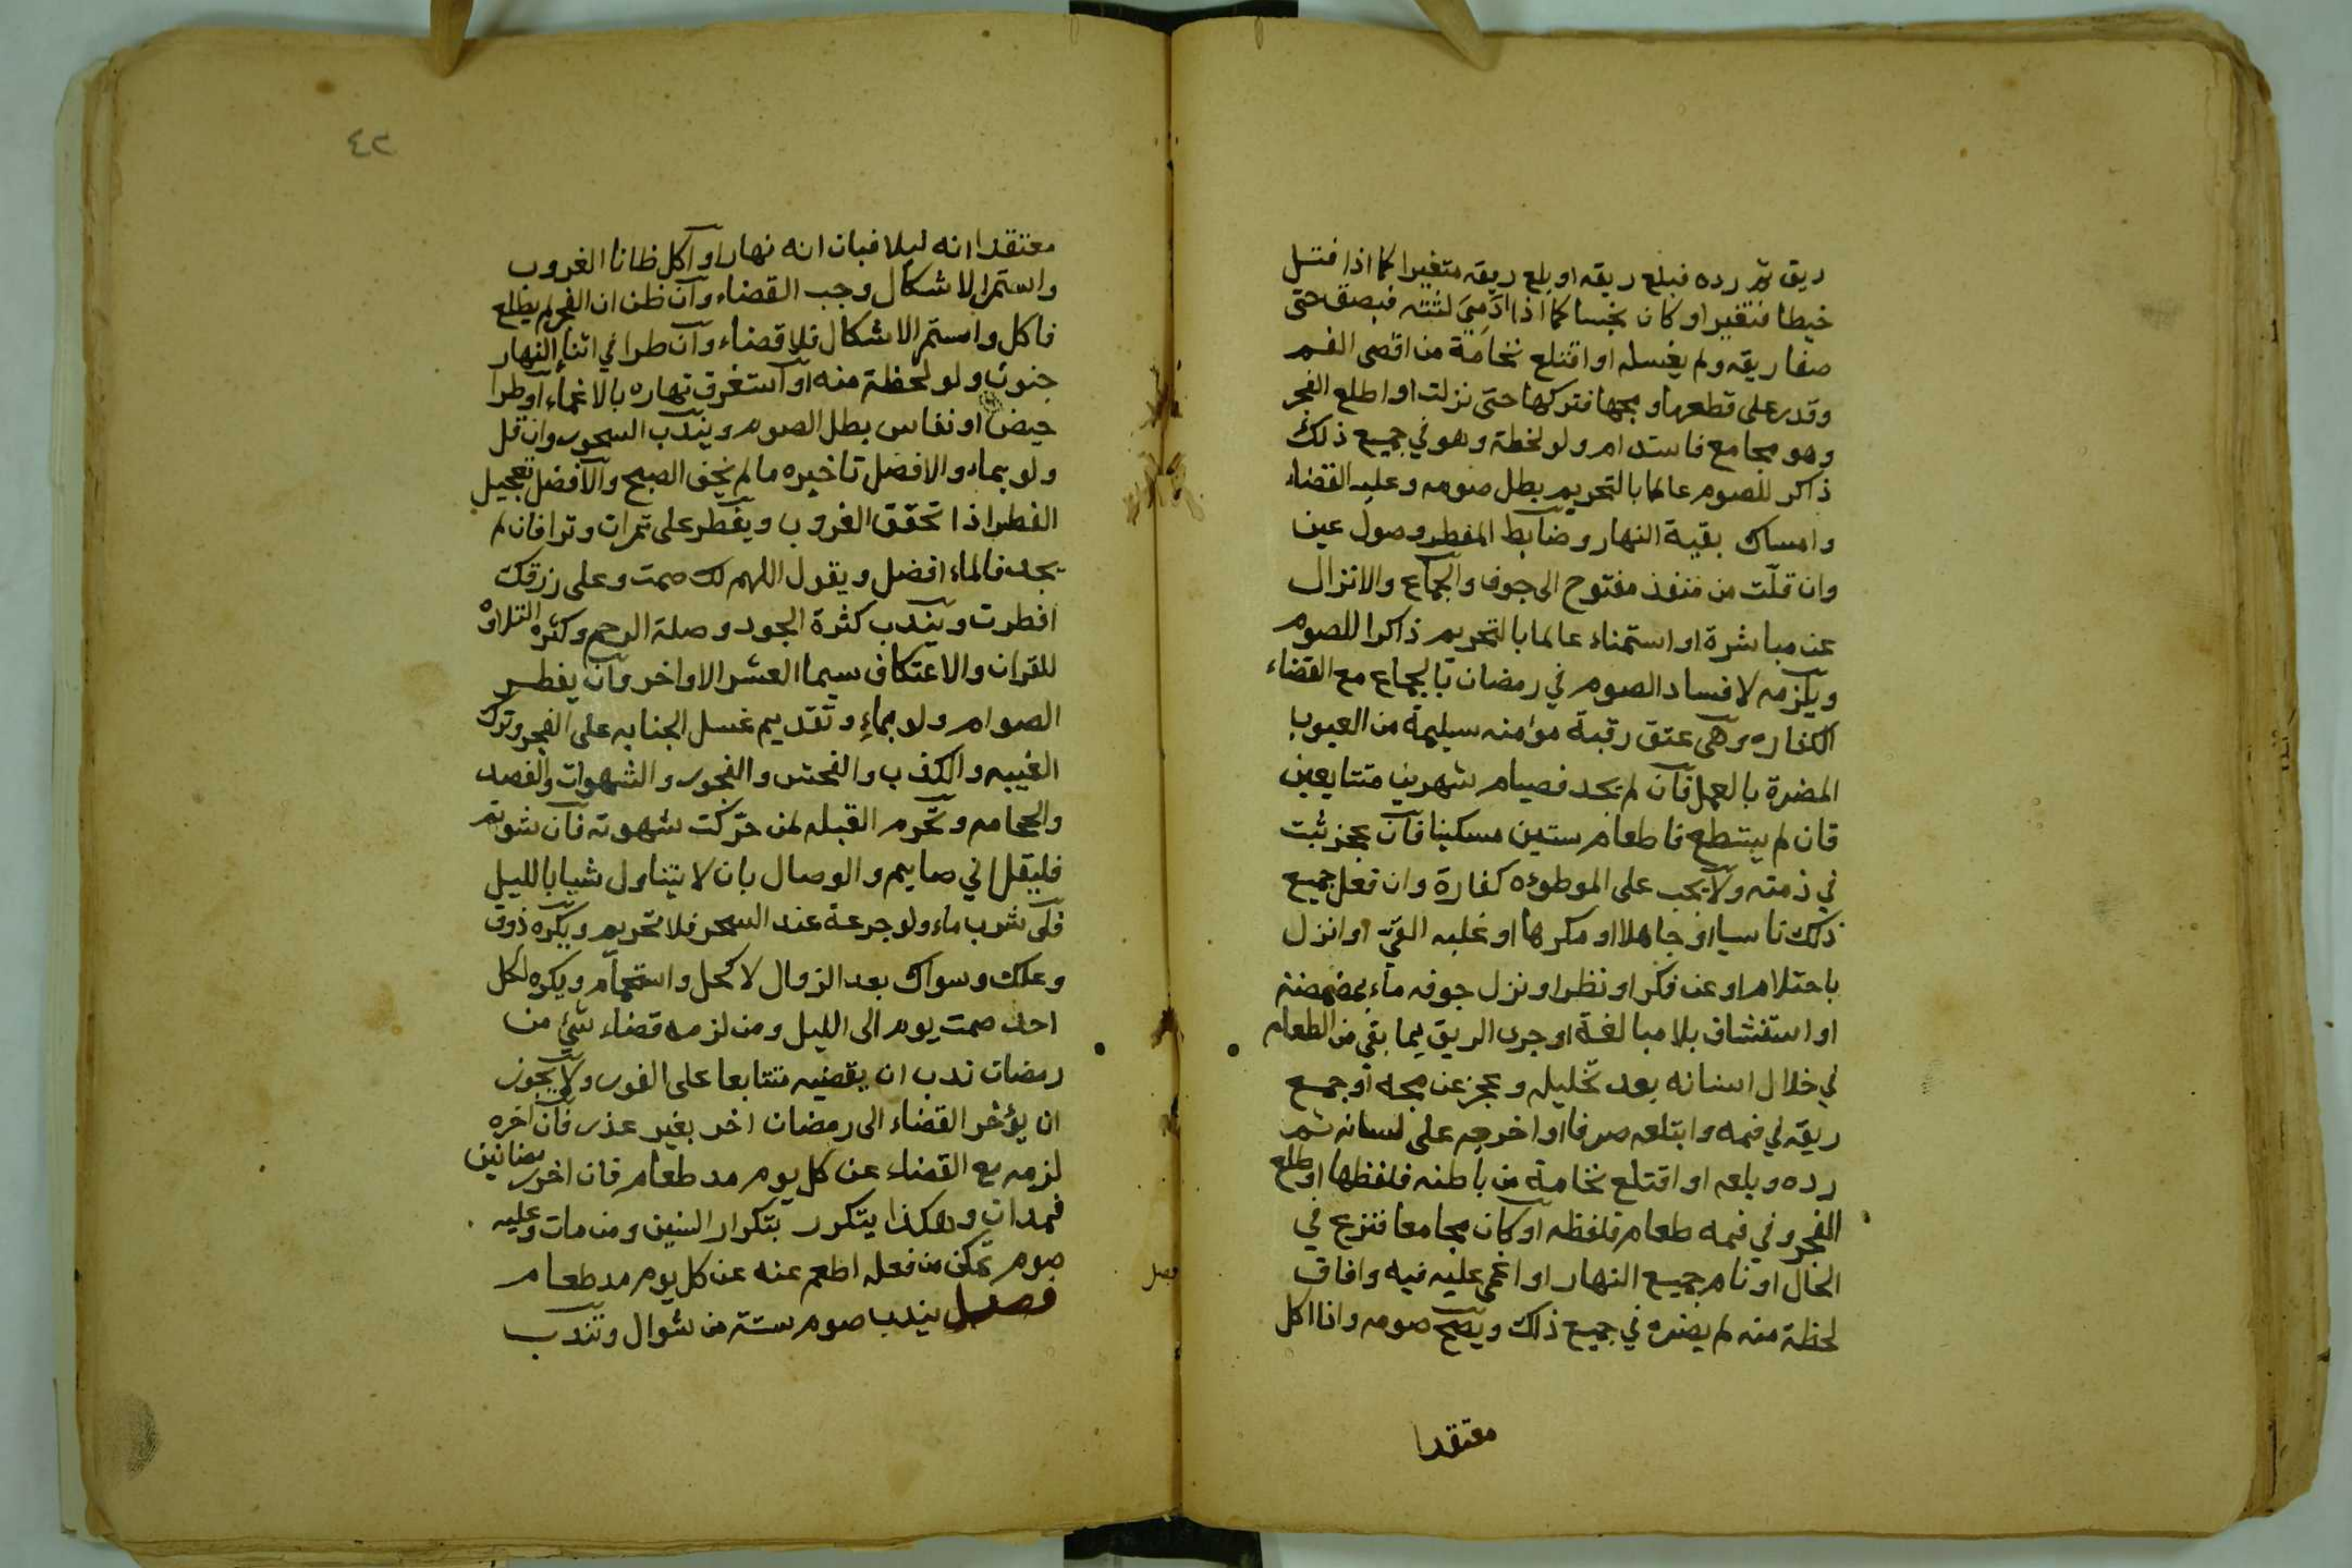 ريق ثم رده فبلع ريقه او بلع ريقه متغيرا كما اذا فتل
خيطا فتغير او كان نجسا كما اذا ادَمِيَ لثته فبصق حتى
صفا ريقه ولم يغسله او اقتلع نخامة من اقصى الفم
وقدر على قطعها ومجها فتركها حتى نزلت او اطلع الفجر
وهو مجامع فاستدام ولو لحظة وهو في جميع ذلك
ذاكر للصوم عالما بالتحريم بطل صومه وعليه القضاء
وامساك بقية النهار وضابط المفطر وصول عين
وان قلّت من منفذ مفتوح الى جوف والجماع والانزال
عن مباشرة او استمناء عالما بالتحريم ذاكرا للصوم
ويلزمه لافساد الصوم في رمضان بالجماع مع القضاء
الكفاره وهى عتق رقبة موامنه سليمة من العيوب
المضرة بالعمل فان لم يجد فصيام شهرين متتابعين
فان لم يستطع فاطعام ستين مسكينا فان عجز ثبت
في ذمته ولا يجب على الموطوءه كفارة وان فعل جميع
ذلك ناسيا او جاهلا او مكرها او غلبه القيّ او انزل
باحتلام او عن فكر او نظر او نزل جوفه ماء بمضمضة
او استنشاق بلا مبالغة او جرى الريق بما بقي من الطعام
في خلال اسنانه بعد تخليله وعجز عن مجه او جمع
ريقه في فمه وابتلعه صرفا او اخرجه على لسانه ثم
رده وبلعه او اقتلع نخامة من باطنه فلفظها او طلع
الفجر وفي فمه طعام فلفظه او كان مجامعا فنزع في
الحال او نام جميع النهار او اغمى عليه فيه وافاق
لحظة منه لم يضره في جميع ذلك ويصح صومه واذا اكل
معتقدا
٤٢
معتقدا انه ليلا فبان انه نهارا او اكل ظانا الغروب
واستمر الاشكال وجب القضاء وان ظن ان الفجر لم يطلع
فاكل واستمر الاشكال فلا قضاء وان طرا في اثناء النهار
جنون ولو لحظة منه او استغرق نهاره بالاغماء او طرا
حيض او نفاس بطل الصوم ويندب السحور وان قل
ولو بماء والافضل تاخيره ما لم يخف الصبح والافضل تعجيل
الفطر اذا تحقق الغروب ويفطر على تمرات وترا فان لم
يجد فالماء افضل ويقول اللهم لك صمت وعلى رزقك
افطرت ويندب كثرة الجود وصلة الرحم وكثره التلاوه
للقران والاعتكاف سيما العشر الاواخر وان يفطر
الصوام ولو بماءِ وتقديم غسل الجنابه على الفجر وترك
الغيبه والكذب والفحش والفجور والشهوات والفصد
والحجامه وتحرم القبله لمن حركت شهوته فان شوتم
فليقل اني صايم والوصال بان لا يتناول شيا بالليل
فلى شرب ماء ولو جرعة عند السحر فلا تحريم ويكره ذوق
وعلك وسواك بعد الزوال لا كحل واستحمام ويكره لكل
احد صمت يوم الى الليل ومن لزمه قضاء شئ من
رمضان ندب ان يقضيه متتابعا على الفور ولا يجوز
ان يؤخر القضاء الى رمضان اخر بغير عذر فان اخره
لزمه مع القضاء عن كل يوم مد طعام فان اخر رمضانين
فمدان وهكذا يتكرر بتكرار السنين ومن مات وعليه
صوم تمكن من فعله اطعم عنه عن كل يوم مد طعام
فصل يندب صوم ستة من شوال وتندب
فصل